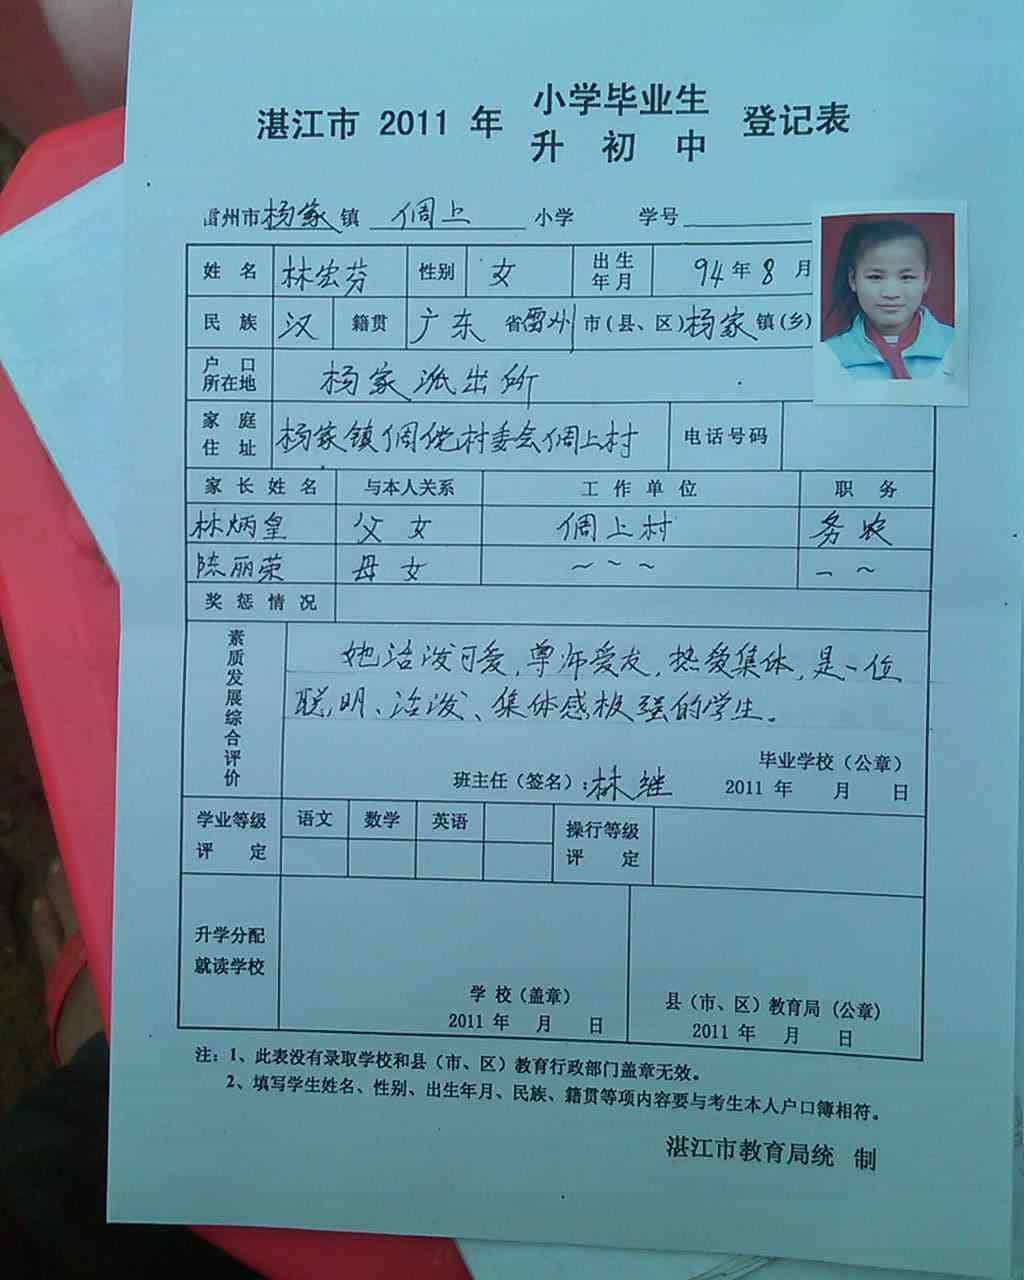 湛江市 2011 年 小学毕业生 登记表
升 初 中
雷州市杨家镇 倜上 小学 学号
姓 名 林宏芬 性别 女 出生年月 94年8月
民 族 汉 籍贯 广东 省雷州市(县、区)杨家镇(乡)
户 口所在地 杨家派出所
家 庭住 址 杨家镇倜侊村委会倜上村 电话号码
家 长 姓 名 与本人关系 工 作 单 位 职 务
林炳皇 父女 倜上村 务农
陈丽荣 母女 ~ ~ ~ ~ ~
奖 惩 情 况
素质发展综合评价
她活泼可爱,尊师爱友,热爱集体,是一位
聪明、活泼、集体感极强的学生。
毕业学校(公章)
班主任(签名):林继 2011 年 月 日
学业等级评 定 语文 数学 英语 操行等级评 定
升学分配
就读学校
学 校(盖章) 县(市、区)教育局(公章)
2011 年 月 日 2011 年 月 日
注:1、此表没有录取学校和县(市、区)教育行政部门盖章无效。
2、填写学生姓名、性别、出生年月、民族、籍贯等项内容要与考生本人户口簿相符。
湛江市教育局统 制